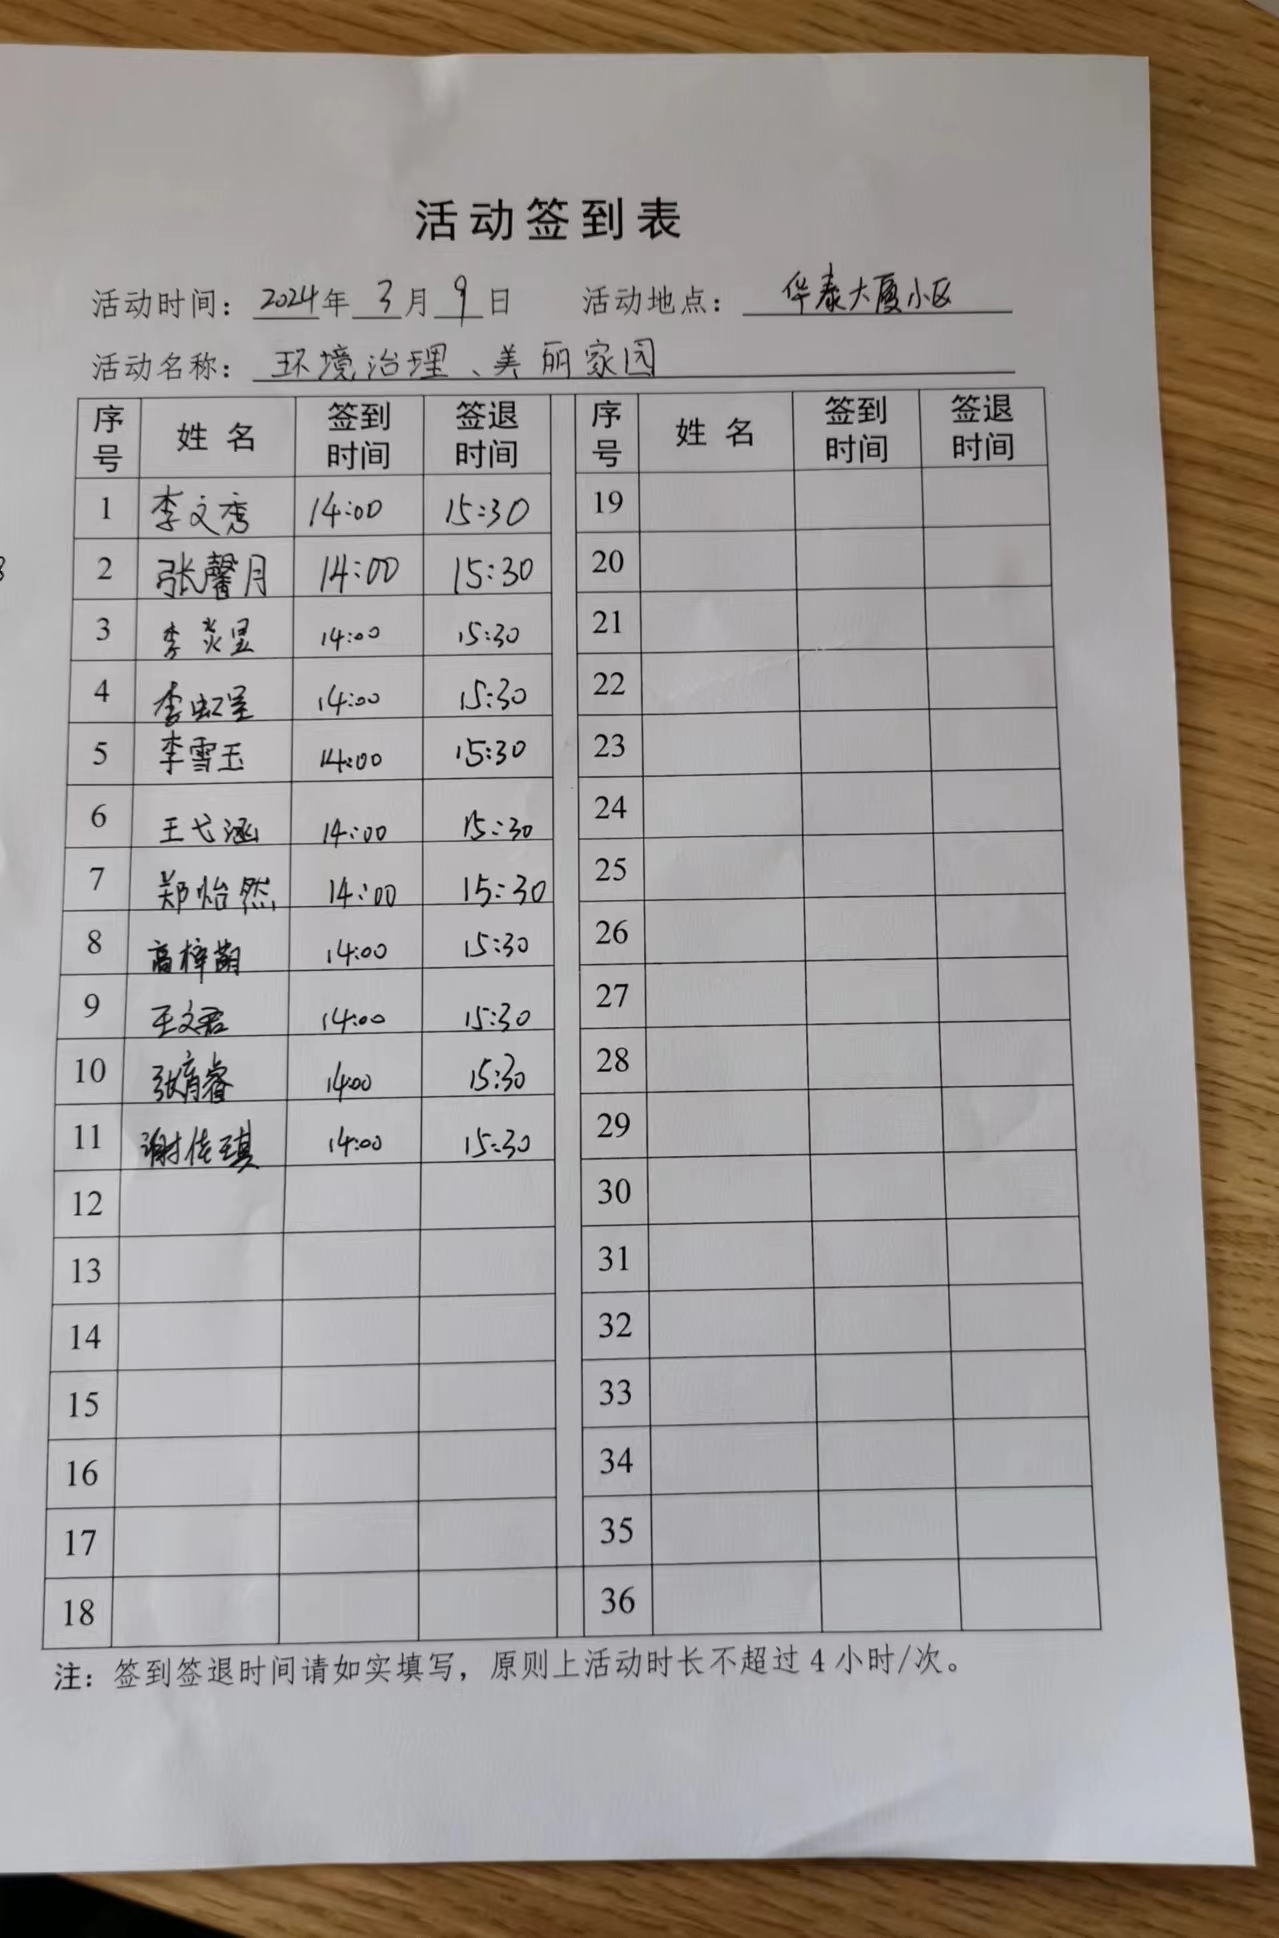 活动签到表
活动时间：2024年 3月 9日 活动地点：华泰大厦小区
活动名称：环境治理、美丽家园
序号 姓名 签到时间 签退时间 序号 姓名 签到时间 签退时间
1 李文秀 14:00 15:30 19
2 张馨月 14:00 15:30 20
3 李炎昱 14:00 15:30 21
4 李虹呈 14:00 15:30 22
5 李雪玉 14:00 15:30 23
6 王弋涵 14:00 15:30 24
7 郑怡然 14:00 15:30 25
8 高梓萌 14:00 15:30 26
9 王文君 14:00 15:30 27
10 张育睿 14:00 15:30 28
11 谢佳琪 14:00 15:30 29
12 30
13 31
14 32
15 33
16 34
17 35
18 36
注：签到签退时间请如实填写，原则上活动时长不超过4小时/次。